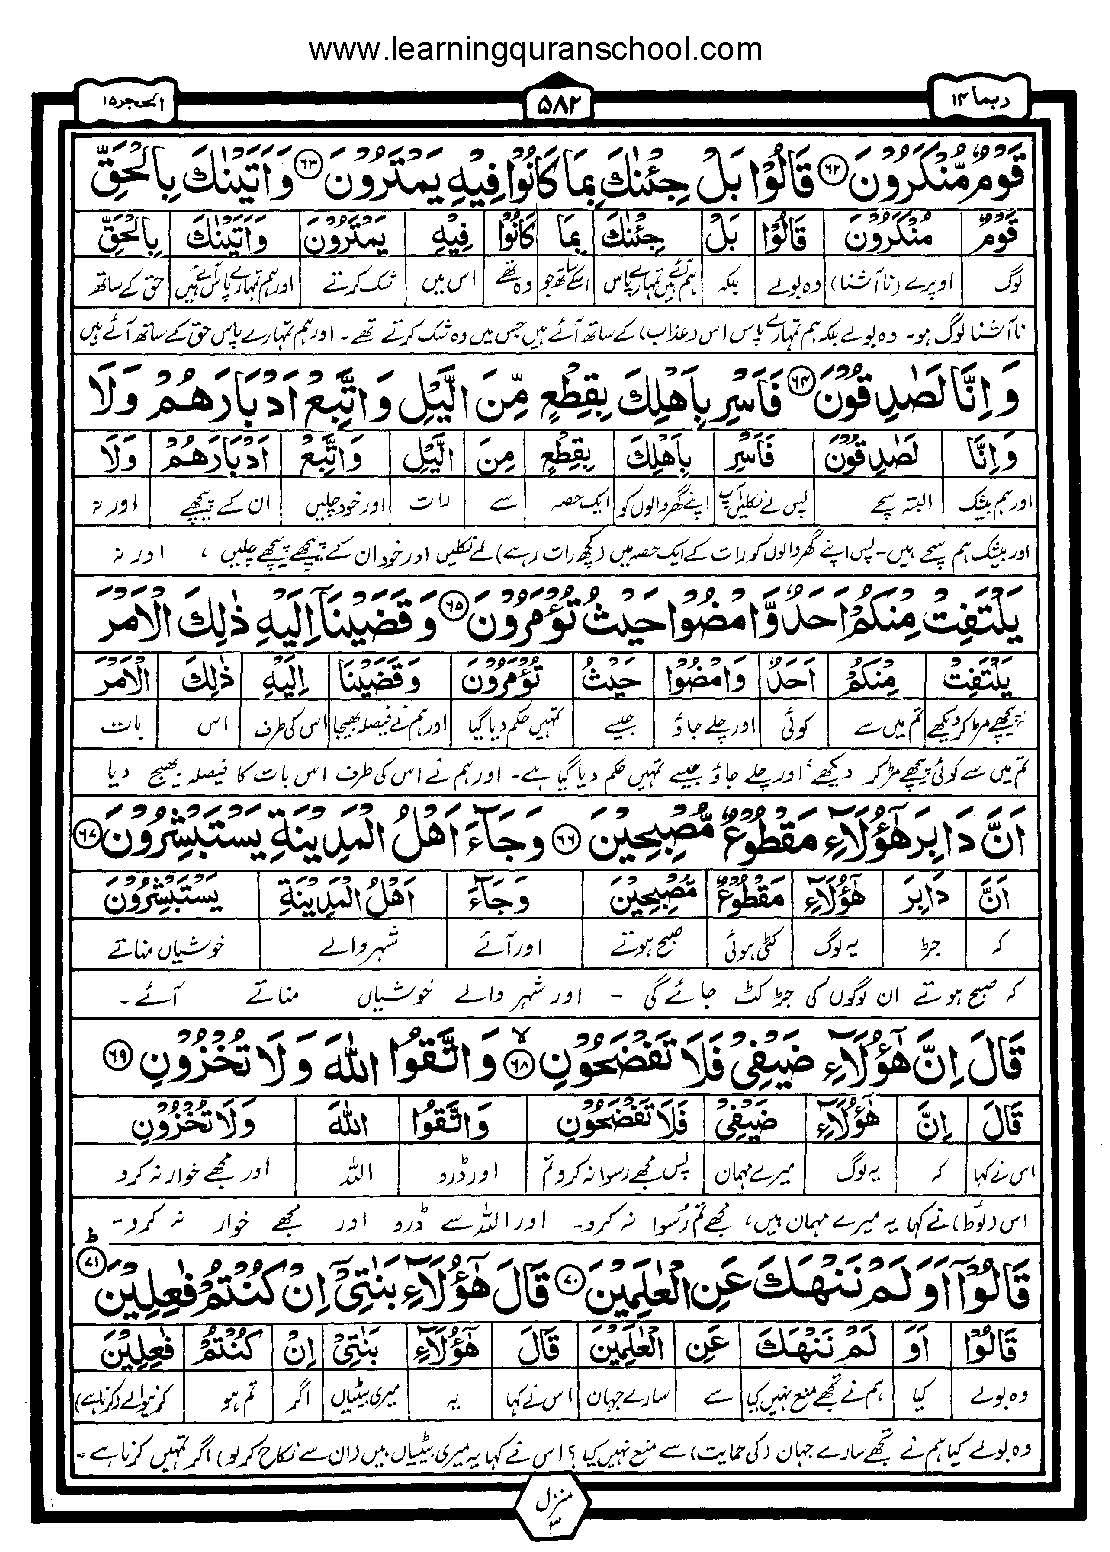 www.learningquranschool.com
ربما ۱۴
۵۸۲
الحجر ۱۵
قَوْمٌ مُّنْكَرُوْنَ ﴿۶۲﴾ قَالُوْا بَلْ جِئْنٰكَ بِمَا كَانُوْا فِیْهِ یَمْتَرُوْنَ ﴿۶۳﴾ وَاَتَیْنٰكَ بِالْحَقِّ
قَوْمٌ مُّنْكَرُوْنَ قَالُوْا بَلْ جِئْنٰكَ بِمَا كَانُوْا فِیْهِ یَمْتَرُوْنَ وَاَتَیْنٰكَ بِالْحَقِّ
لوگ اوپرے (ناآشنا) وہ بولے بلکہ ہم آئے ہیں تمہارے پاس اسکے ساتھ جو وہ تھے اس میں شک کرتے اور ہم تمہارے پاس آئے ہیں حق کے ساتھ
ناآشنا لوگ ہو۔ وہ بولے بلکہ ہم تمہارے پاس اس (عذاب) کے ساتھ آئے ہیں جس میں وہ شک کرتے تھے۔ اور ہم تمہارے پاس حق کے ساتھ آئے ہیں
وَاِنَّا لَصٰدِقُوْنَ ﴿۶۴﴾ فَاَسْرِ بِاَهْلِكَ بِقِطْعٍ مِّنَ الَّیْلِ وَاتَّبِعْ اَدْبَارَهُمْ وَلَا
وَاِنَّا لَصٰدِقُوْنَ فَاَسْرِ بِاَهْلِكَ بِقِطْعٍ مِنَ الَّیْلِ وَاتَّبِعْ اَدْبَارَهُمْ وَلَا
اور ہم بیشک البتہ سچے پس لے نکلیں آپ اپنے گھر والوں کو ایک حصہ سے رات اور خود چلیں ان کے پیچھے اور نہ
اور بیشک ہم سچے ہیں۔ پس اپنے گھر والوں کو رات کے ایک حصہ میں (کچھ رات رہے) لے نکلیں اور خود ان کے پیچھے پیچھے چلیں، اور نہ
یَلْتَفِتْ مِنْكُمْ اَحَدٌ وَّامْضُوْا حَیْثُ تُؤْمَرُوْنَ ﴿۶۵﴾ وَقَضَیْنَاۤ اِلَیْهِ ذٰلِكَ الْاَمْرَ
یَلْتَفِتْ مِنْكُمْ اَحَدٌ وَامْضُوْا حَیْثُ تُؤْمَرُوْنَ وَقَضَیْنَا اِلَیْهِ ذٰلِكَ الْاَمْرَ
پیچھے مڑ کر دیکھے تم میں سے کوئی اور چلے جاؤ جیسے تمہیں حکم دیا گیا اور ہم نے فیصلہ بھیجا اس کی طرف اس بات
تم میں سے کوئی پیچھے مڑ کر دیکھے، اور چلے جاؤ جیسے تمہیں حکم دیا گیا ہے۔ اور ہم نے اس کی طرف اس بات کا فیصلہ بھیج دیا
اَنَّ دَابِرَ هٰۤؤُلَآءِ مَقْطُوْعٌ مُّصْبِحِیْنَ ﴿۶۶﴾ وَجَآءَ اَهْلُ الْمَدِیْنَةِ یَسْتَبْشِرُوْنَ ﴿۶۷﴾
اَنَّ دَابِرَ هٰۤؤُلَآءِ مَقْطُوْعٌ مُصْبِحِیْنَ وَجَآءَ اَهْلُ الْمَدِیْنَةِ یَسْتَبْشِرُوْنَ
کہ جڑ یہ لوگ کٹی ہوئی صبح ہوتے اور آئے شہر والے خوشیاں مناتے
کہ صبح ہوتے ان لوگوں کی جڑ کٹ جائے گی۔ اور شہر والے خوشیاں مناتے آئے۔
قَالَ اِنَّ هٰۤؤُلَآءِ ضَیْفِیْ فَلَا تَفْضَحُوْنِ ﴿۶۸﴾ۙ وَاتَّقُوا اللّٰهَ وَلَا تُخْزُوْنِ ﴿۶۹﴾
قَالَ اِنَّ هٰۤؤُلَآءِ ضَیْفِیْ فَلَا تَفْضَحُوْنِ وَاتَّقُوا اللّٰهَ وَلَا تُخْزُوْنِ
اس نے کہا کہ یہ لوگ میرے مہمان پس مجھے رسوا نہ کرو تم اور ڈرو اللہ اور مجھے خوار نہ کرو
اس (لوط) نے کہا یہ میرے مہمان ہیں، مجھے تم رُسوا نہ کرو۔ اور اللہ سے ڈرو اور مجھے خوار نہ کرو۔
قَالُوْۤا اَوَلَمْ نَنْهَكَ عَنِ الْعٰلَمِیْنَ ﴿۷۰﴾ قَالَ هٰۤؤُلَآءِ بَنٰتِیْۤ اِنْ كُنْتُمْ فٰعِلِیْنَ ﴿۷۱﴾ؕ
قَالُوْا اَوَ لَمْ نَنْهَكَ عَنِ الْعٰلَمِیْنَ قَالَ هٰۤؤُلَآءِ بَنٰتِیْۤ اِنْ كُنْتُمْ فٰعِلِیْنَ
وہ بولے کیا ہم نے تجھے منع نہیں کیا سے سارے جہان اس نے کہا یہ میری بیٹیاں اگر تم ہو کرنیوالے (کرنا ہے)
وہ بولے کیا ہم نے تجھے سارے جہان (کی حمایت) سے منع نہیں کیا؟ اس نے کہا یہ میری بیٹیاں ہیں (ان سے نکاح کر لو) اگر تمہیں کرنا ہے۔
منزل ۳